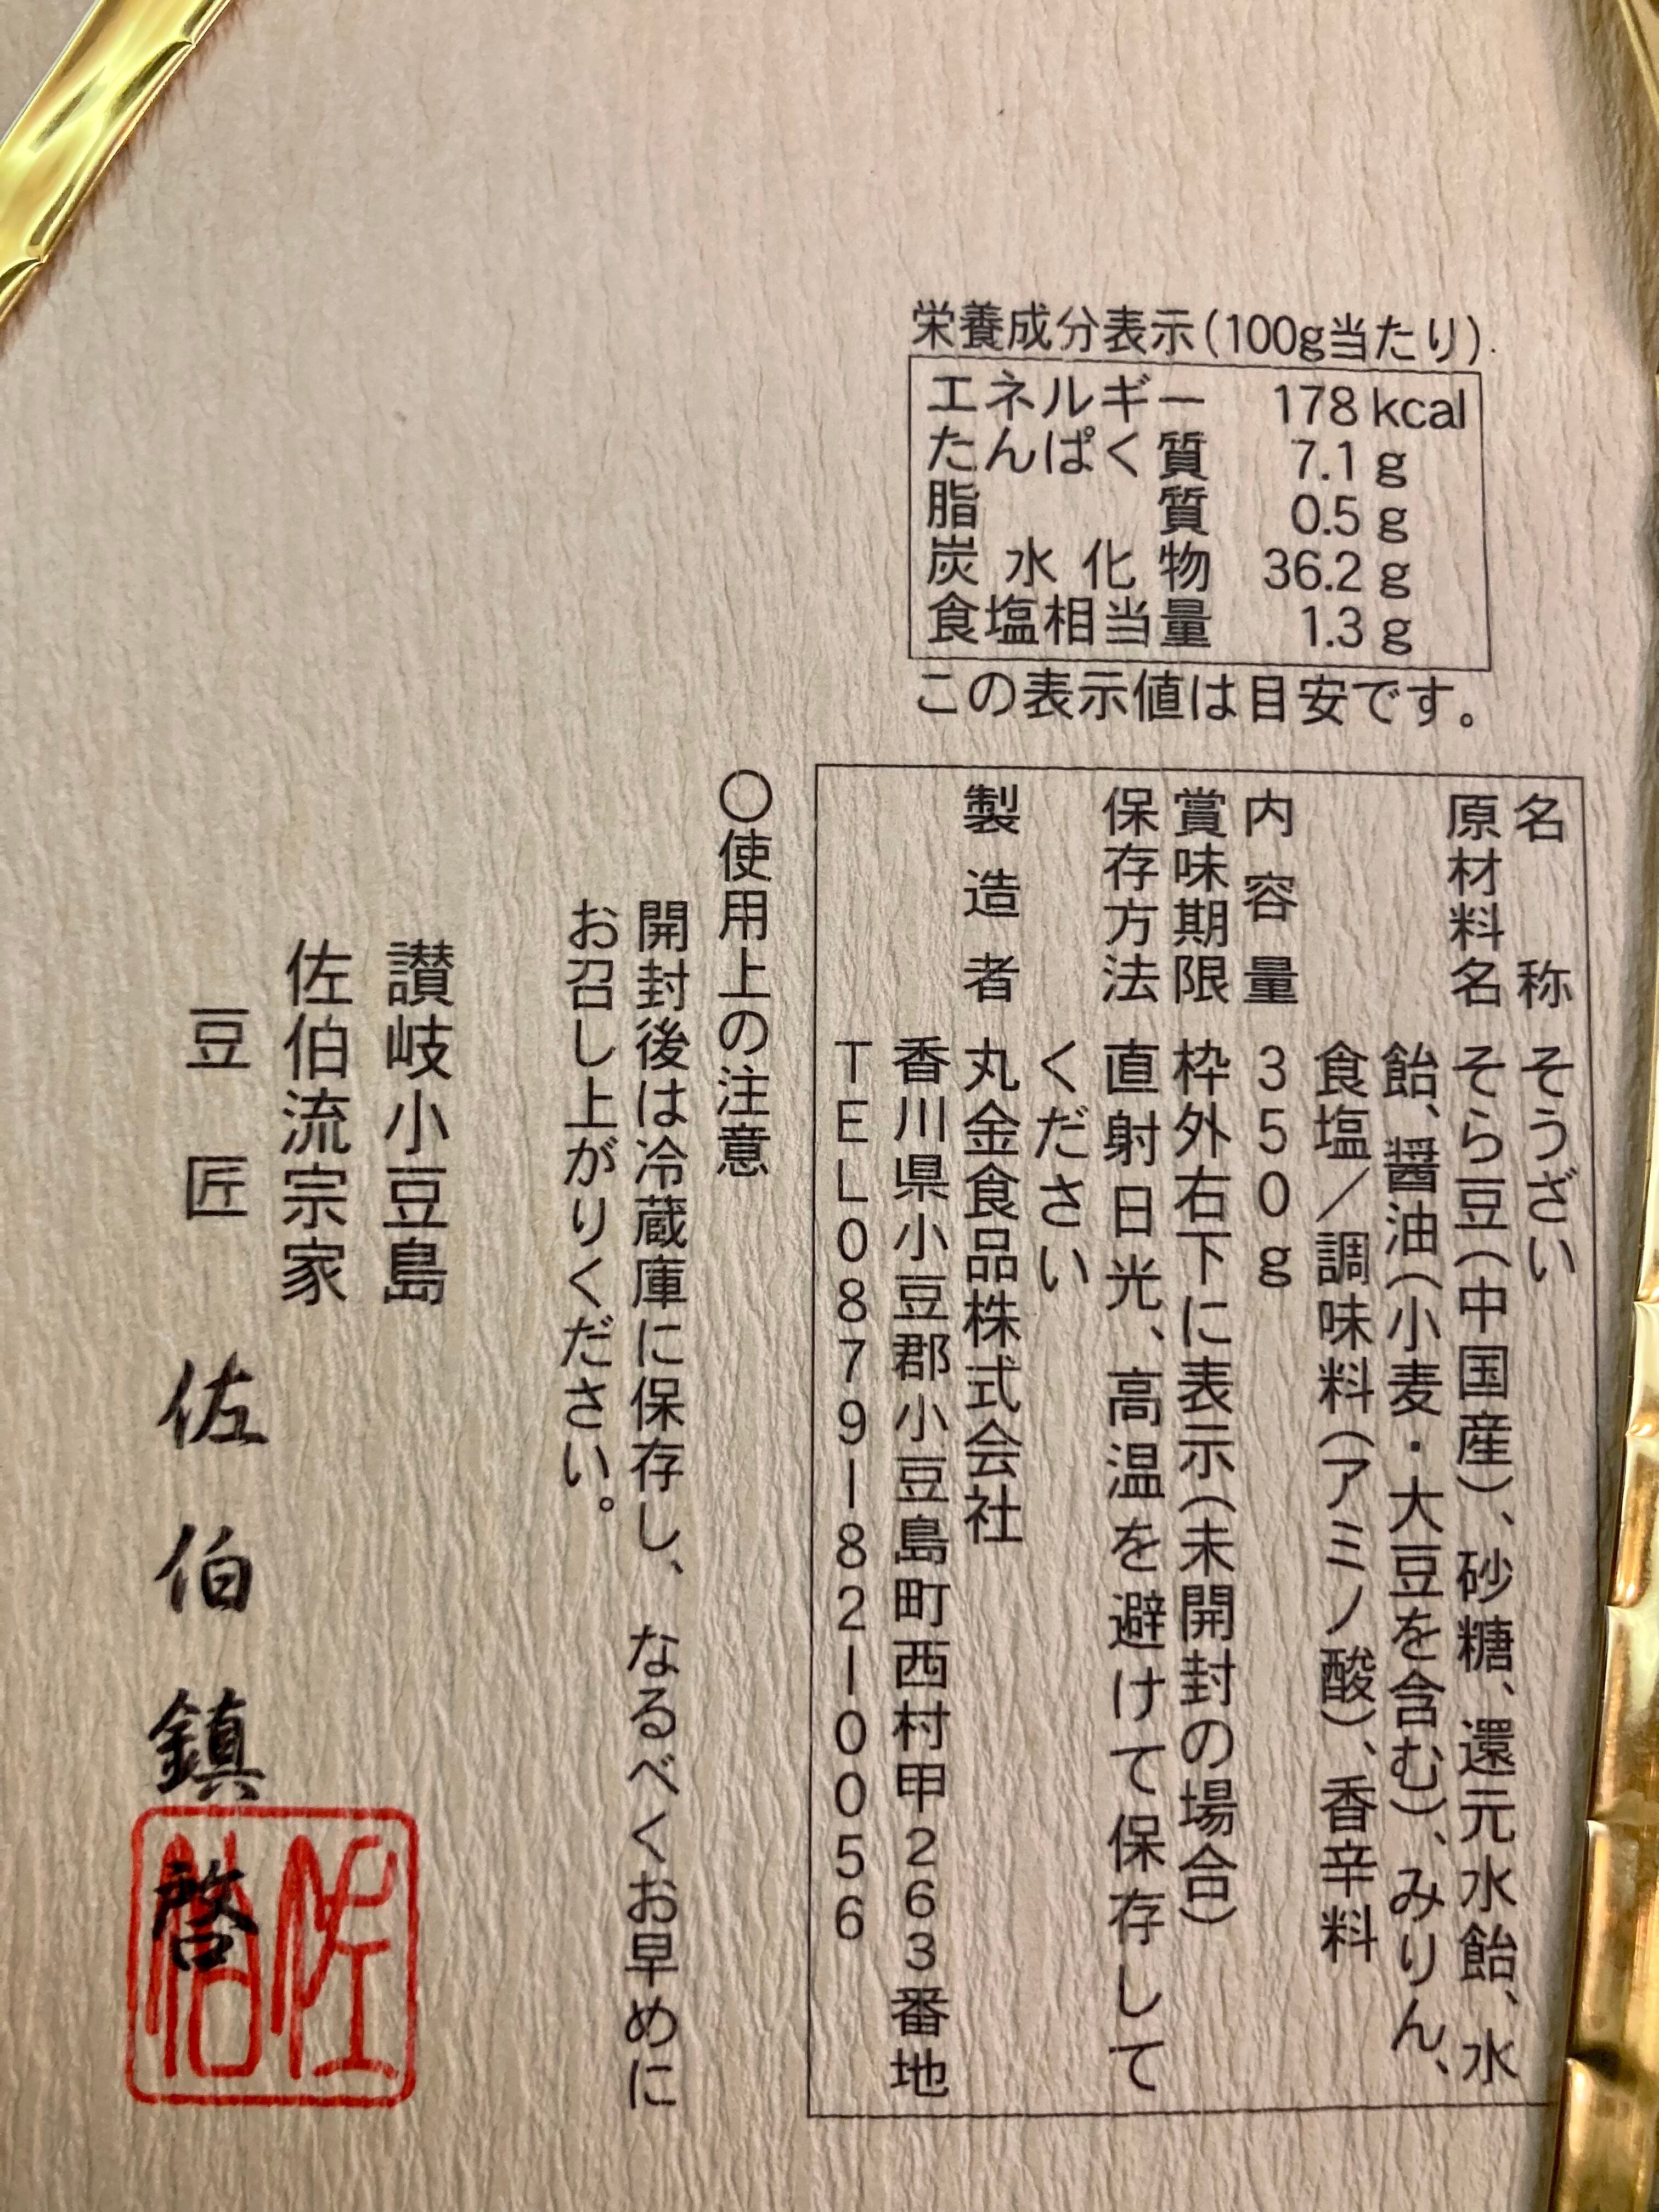 栄養成分表示(100g当たり)
エネルギー 178 kcal
たんぱく質 7.1 g
脂質 0.5 g
炭水化物 36.2 g
食塩相当量 1.3 g
この表示値は目安です。
名称 そうざい
原材料名 そら豆(中国産)、砂糖、還元水飴、水
飴、醤油(小麦・大豆を含む)、みりん、
食塩／調味料(アミノ酸)、香辛料
内容量 350g
賞味期限 枠外右下に表示(未開封の場合)
保存方法 直射日光、高温を避けて保存して
ください
製造者 丸金食品株式会社
香川県小豆郡小豆島町西村甲263番地
TEL0879-82-0056
○使用上の注意
開封後は冷蔵庫に保存し、なるべくお早めに
お召し上がりください。
讃岐小豆島
佐伯流宗家
豆匠 佐伯鎮啓
佐伯